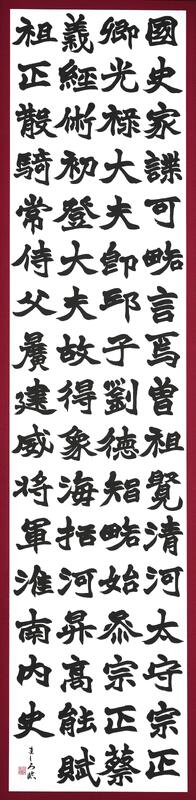 國史家諜可略言焉曽祖覽清河太守宗正
卿光禄大夫即邱子劉徳智略始叅宗正蔡
義經術初登大夫故得象海括河昇高能賦
祖正散騎常侍父廣建威将軍淮南内史